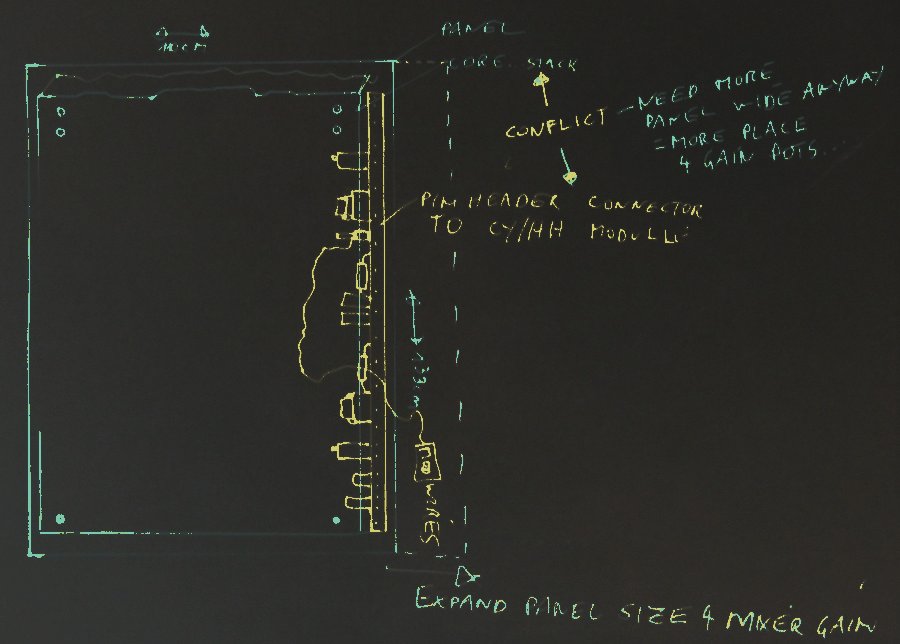 PANEL
10CM
CORE STACK
CONFLICT
NEED MORE
PANEL WIDE ANYWAY
= MORE PLACE
4 GAIN POTS...
PIN HEADER CONNECTOR
TO CY/HH MODULE
NO
WIRES
EXPAND PANEL SIZE 4 MIXER GAIN